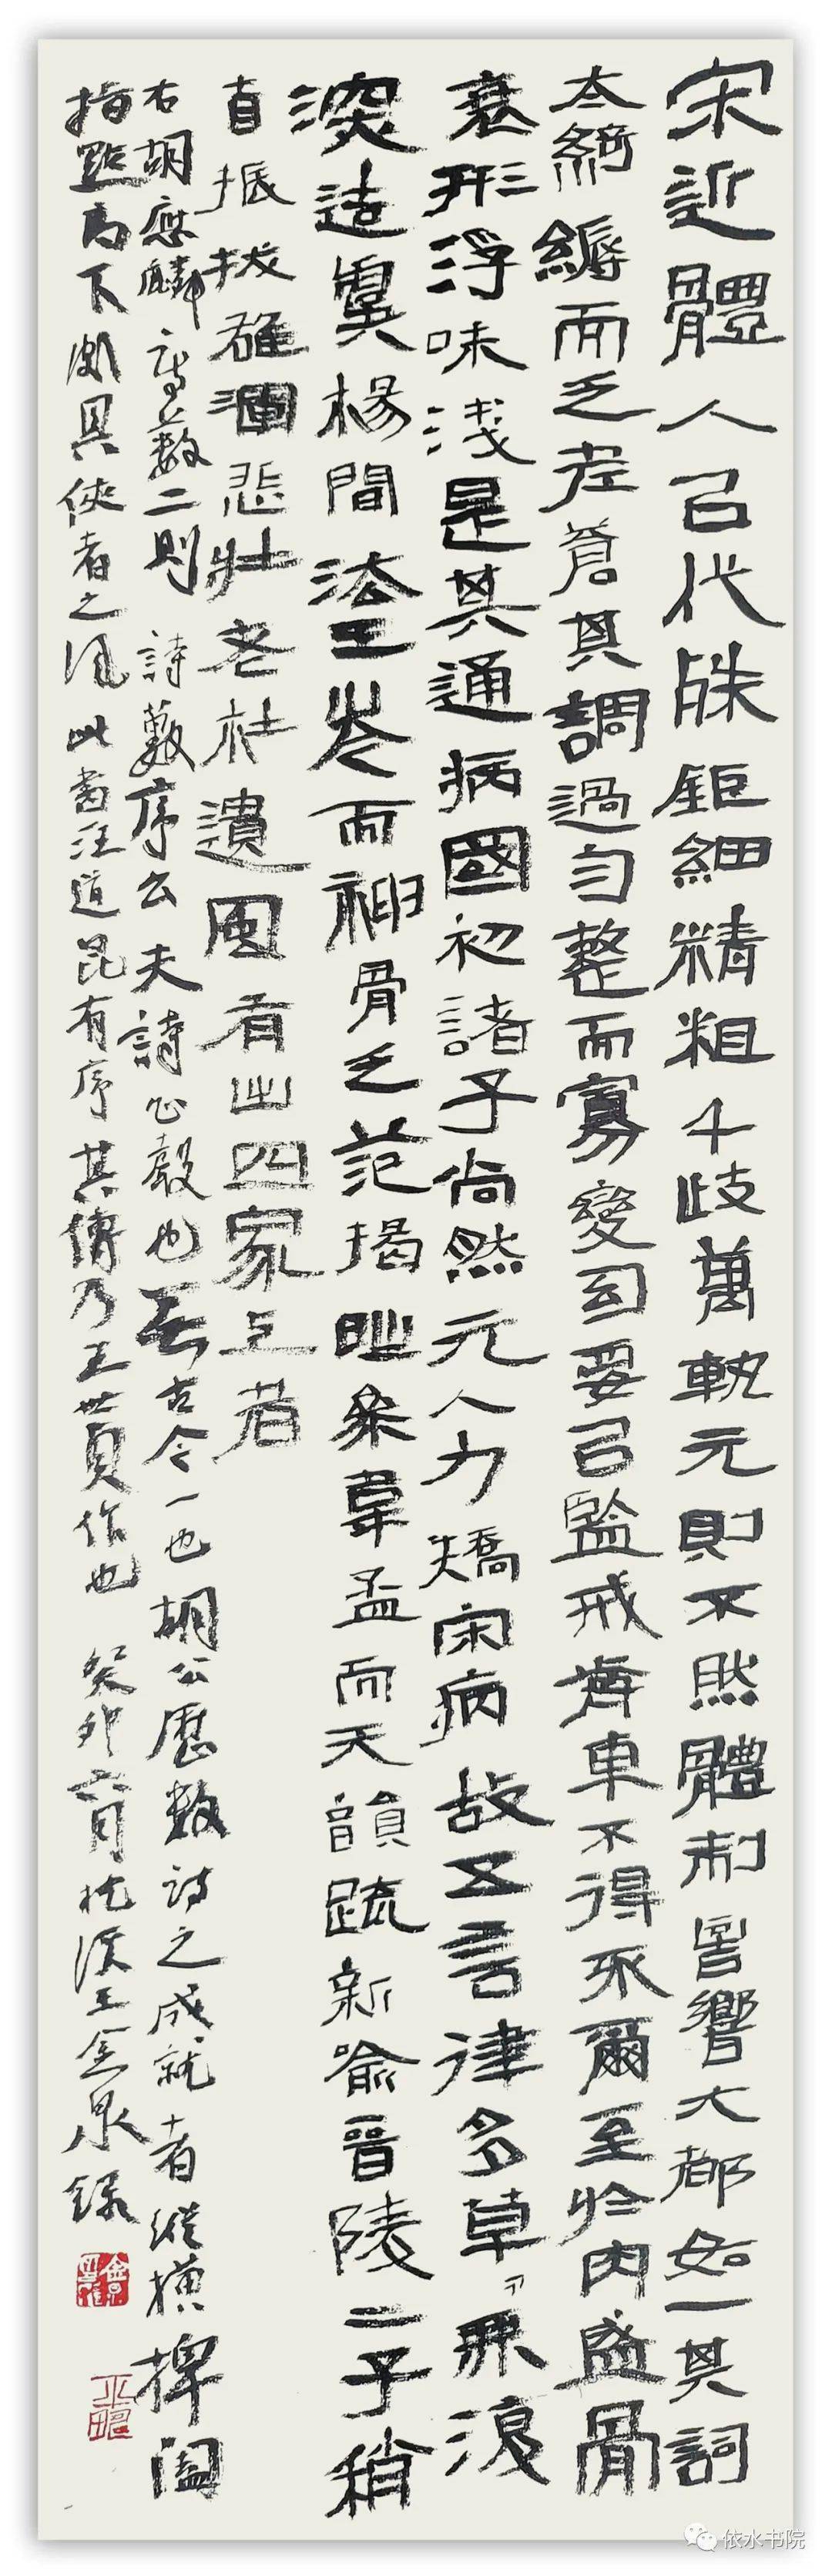 宋近體人以代殊鉅細精粗千歧萬軌元則不然體制音響大都如一其詞
太綺縟而乏老蒼其調過勻整而寡變幻要以監戒前車不得不爾至於肉盛骨
衰形浮味淺是其通病國初諸子尚然元人力矯宋病故五言律多草草無復
深造虞楊間法王岑而神骨乏范揭時參韋孟而天韻疏新喻晉陵二子稍
自振拔雄渾悲壯老杜遺風有出四家上者
右胡應麟詩藪二則 詩藪序云夫詩心聲也無古今一也胡公歷數詩之成就者縱橫捭闔
指點高下頗具俠者之風此書汪道昆有序其傳乃王世貞作也 癸卯六月 王金泉錄
依水书院